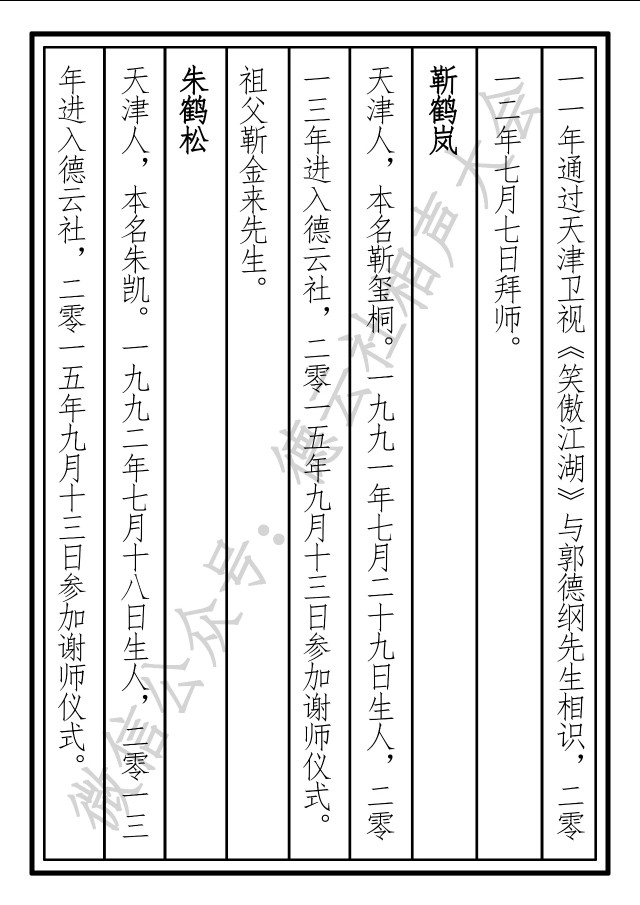 一一年通过天津卫视《笑傲江湖》与郭德纲先生相识，二零
一二年七月七日拜师。
靳鹤岚
天津人，本名靳玺桐。一九九一年七月二十九日生人，二零
一三年进入德云社，二零一五年九月十三日参加谢师仪式。
祖父靳金来先生。
朱鹤松
天津人，本名朱凯。一九九二年七月十八日生人，二零一三
年进入德云社，二零一五年九月十三日参加谢师仪式。
微信公众号：德云社相声大会